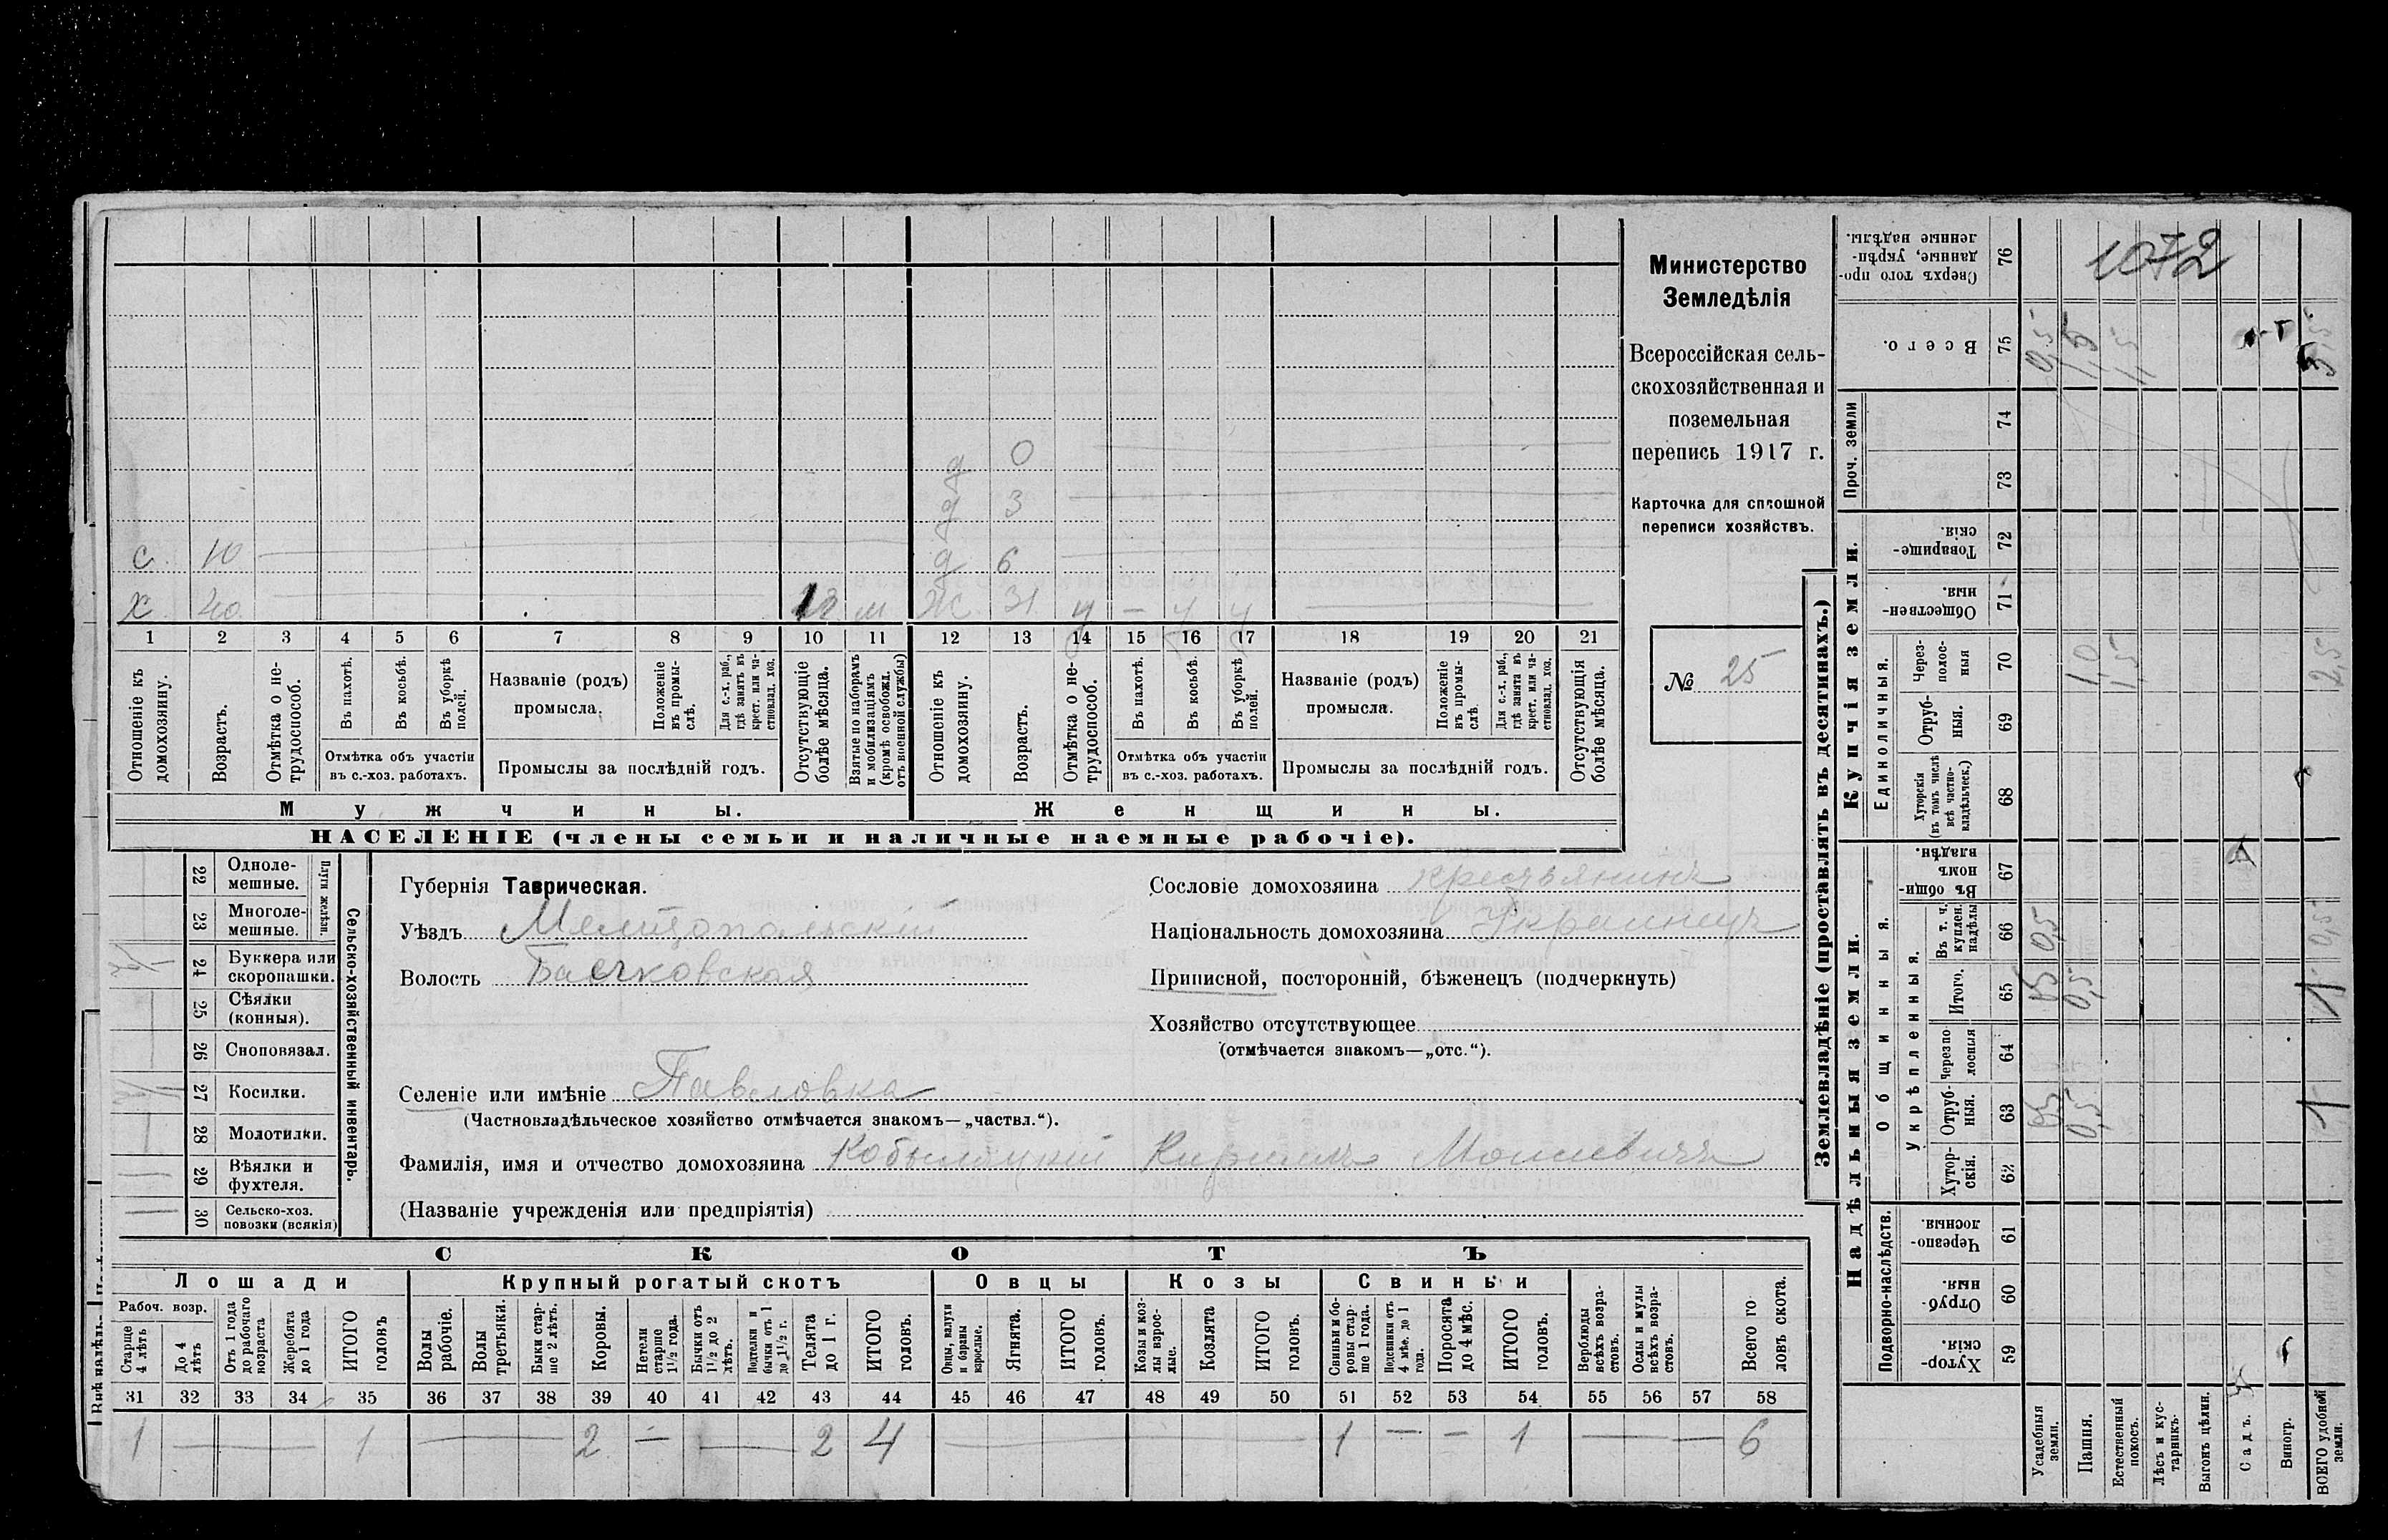 Министерство
Земледѣлія
Всероссійская сель-
скохозяйственная и
поземельная
перепись 1917 г.
Карточка для сплошной
переписи хозяйствъ.
№ 25
1072
д 0
д 3
с 10 д 6
х 40 м Ж 31 у — у у
1 2 3 4 5 6 7 8 9 10 11 12 13 14 15 16 17 18 19 20 21
Отношеніе къ домохозяину.
Возрастъ.
Отмѣтка о не-трудоспособ.
Въ пахотѣ.
Въ косьбѣ.
Въ уборкѣ полей.
Отмѣтка объ участіи въ с.-хоз. работахъ.
Названіе (родъ) промысла.
Положеніе въ промы-слѣ.
Для с.-х. раб., гдѣ занятъ въ крест. или ча-стновлад. хоз.
Промыслы за послѣдній годъ.
Отсутствующіе болѣе мѣсяца.
Взятые по наборамъ и мобилизаціямъ (кромѣ освобожд. отъ военной службы)
Отношеніе къ домохозяину.
Возрастъ.
Отмѣтка о не-трудоспособ.
Въ пахотѣ.
Въ косьбѣ.
Въ уборкѣ полей.
Отмѣтка объ участіи въ с.-хоз. работахъ.
Названіе (родъ) промысла.
Положеніе въ промы-слѣ.
Для с.-х. раб., гдѣ занята въ крест. или ча-стновлад. хоз.
Промыслы за послѣдній годъ.
Отсутствующія болѣе мѣсяца.
Мужчины. Женщины.
НАСЕЛЕНІЕ (члены семьи и наличные наемные рабочіе).
Сельско-хозяйственный инвентарь.
Плуги желѣзн.
22 Одноле-мешные.
23 Многоле-мешные.
24 Буккера или скоропашки.
25 Сѣялки (конныя).
26 Сноповязал.
27 Косилки.
28 Молотилки.
29 Вѣялки и фухтеля.
30 Сельско-хоз. повозки (всякія)
Губернія Таврическая.
Уѣздъ Мелитопольскій
Волость
Селеніе или имѣніе Павловка
(Частновладѣльческое хозяйство отмѣчается знакомъ—„частвл.“).
Фамилія, имя и отчество домохозяина Кобыляцкій Кирилъ Моисеевичъ
(Названіе учрежденія или предпріятія)
Сословіе домохозяина крестьянинъ
Національность домохозяина Украинецъ
Приписной, посторонній, бѣженецъ (подчеркнуть)
Хозяйство отсутствующее
(отмѣчается знакомъ—„отс.“).
СКОТЪ
Лошади Крупный рогатый скотъ Овцы Козы Свиньи
Рабоч. возр.
Старше 4 лѣтъ
До 4 лѣтъ
Отъ 1 года до рабочаго возраста
Жеребята до 1 года
ИТОГО головъ
Волы рабочіе.
Волы третьяки.
Быки стар-ше 2 лѣтъ.
Коровы.
Нетели старше 1½ года.
Бычки отъ 1½ до 2 лѣтъ.
Подтелки и бычки отъ 1 до 1½ г.
Телята до 1 г.
ИТОГО головъ.
Овцы, валухи и бараны взрослые.
Ягнята.
ИТОГО головъ.
Козы и коз-лы взрос-лые.
Козлята
ИТОГО головъ.
Свиньи и бо-ровы стар-ше 1 года.
Подсвинки отъ 4 мѣс. до 1 года.
Поросята до 4 мѣс.
ИТОГО головъ.
Верблюды всѣхъ возра-стовъ.
Ослы и мулы всѣхъ возра-стовъ.
Всего го ловъ скота.
31 32 33 34 35 36 37 38 39 40 41 42 43 44 45 46 47 48 49 50 51 52 53 54 55 56 57 58
1 — 1 — 2 — — 2 4 — 1 — — 1 — — 6
Землевладѣніе (проставлять въ десятинахъ.)
Сверхъ того про-данные, укрѣп-ленные надѣлы. 76
Всего. 75 0,5 1,5 1,5 3,5
Проч. земли 74
73
Купчія земли.
Товарище-скія. 72
Обществен-ныя. 71
Единоличныя.
Через-полос-ныя 70 1,0 1,5 2,5
Отруб-ныя. 69
Хуторскія (въ томъ числѣ всѣ частно-владѣльческ.) 68
Надѣльныя земли.
Общинныя.
Въ общи-номъ владѣн. 67
Укрѣпленныя.
Въ т. ч. куплен. надѣлы 66 0,5 0,5
Итого. 65 0,5 1
Черезпо-лосныя 64
Отруб-ныя. 63 0,5 1
Хутор-скія. 62
Подворно-наслѣдств.
Черезпо-лосныя. 61
Отруб-ныя. 60
Хутор-скія. 59
Усадебныя земли.
Пашня.
Естественный покосъ.
Лѣсъ и кус-тарникъ.
Выгонъ цѣлин.
Садъ.
Виногр.
ВСЕГО удобной земли.